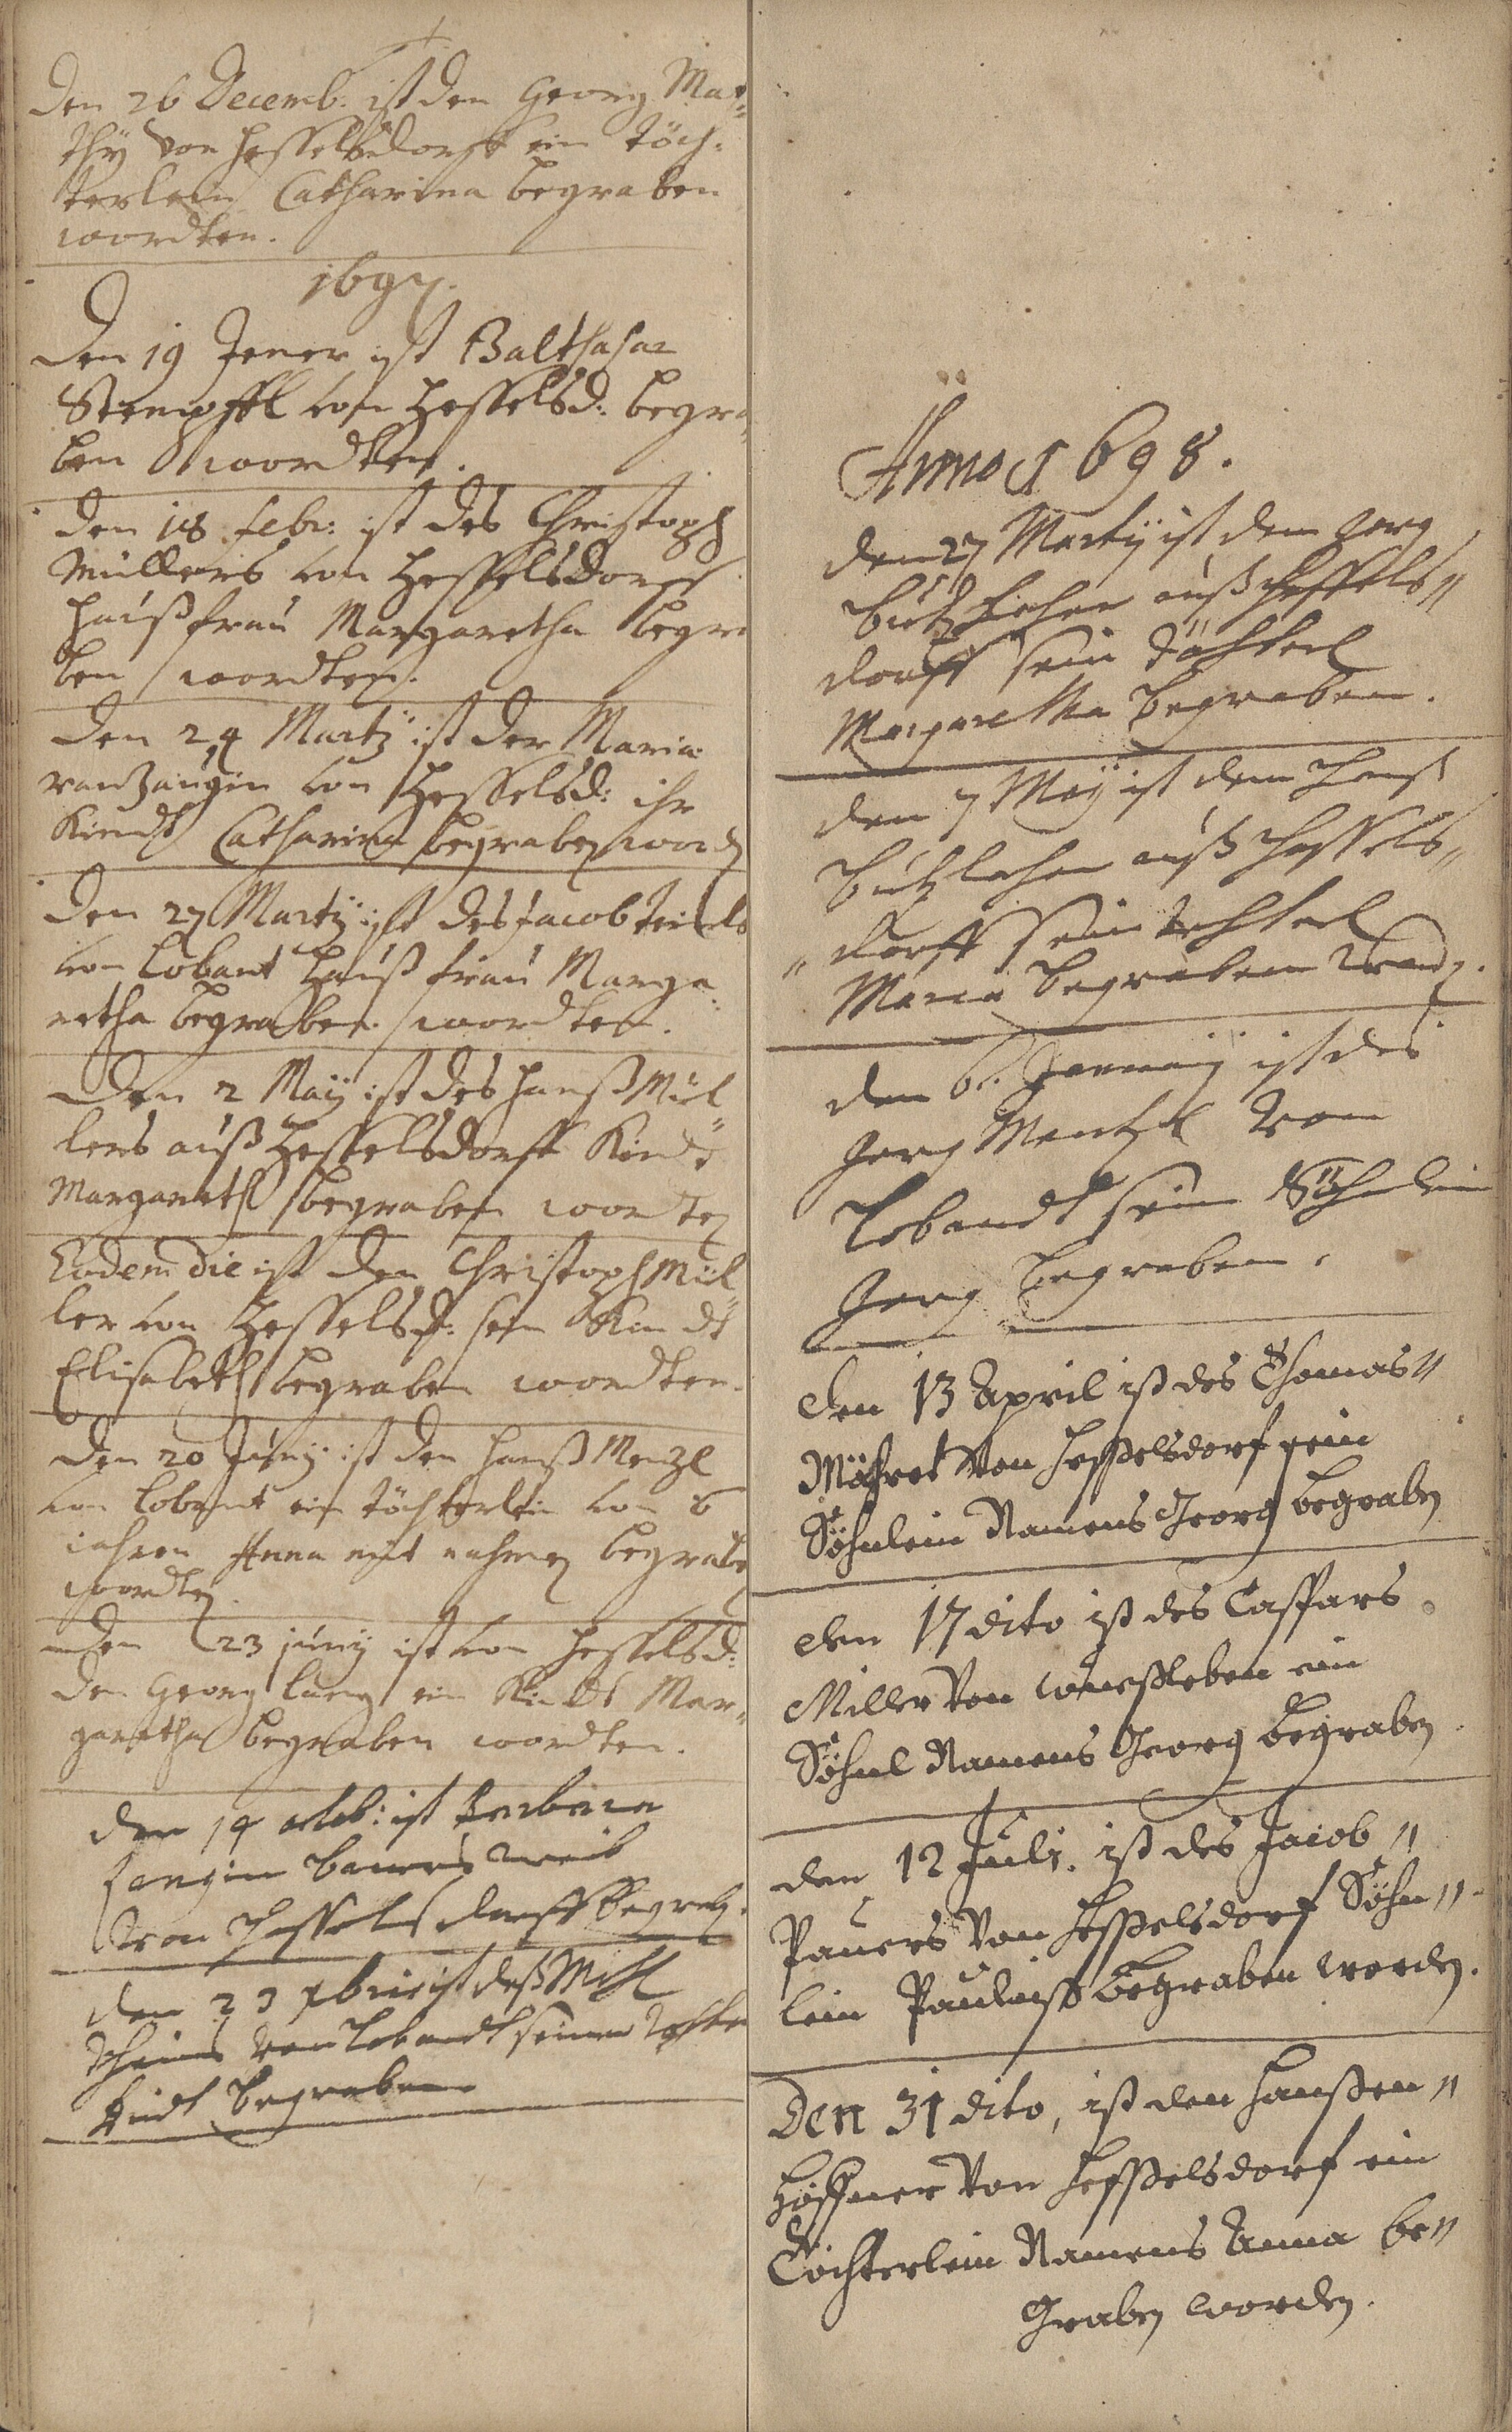 Den 26 Decemb. ist den Georg Mat=
thÿ von Hesselsdorff ein töch=
terlein Catharina begraben
wordten.
1697.
Den 19 Jener ist Balthasar
Stempffl von Hesselsd: begra=
ben wordten.
Den 18 febr: ist des Christoph
Müllers von Hesselsdorff
haußfrau Margaretha begra
ben wordten.
Den 24 Martÿ ist der Maria
von Hesselsd: ihr
Kindt Catharina begraben word
Den 27 Martÿ ist des Jacob
von Lobant Haußfrau Marga=
retha begraben wordten.
Den 2 Maÿ ist des Hanß Mül=
lers auß Hesselsdorff Kindt
Margareth begraben worten
Eodem die ist den Christoph Mül=
ler von Hesselsd: sein Kindt
Elisabeth begraben wordten.
Den 20 Junÿ ist den Hanß Menzl
von Lobant ein töchterlein von 6
jahren Anna mit nahmen begraben
wordten
Den 23 junÿ ist von Hesselsd:
den Georg Lang ein Kindt Mar=
garetha begraben wordten.
den 14 octob: ist Barbara
Langin baurs weib
von Hesselsdorff begrab.
den 23 ist deß Michl
von Lobandt seinen
Kindt begraben
Anno 1698.
den 27 Martÿ ist dem Jerg
auß Hessels=
dorff sein töchterl
Margaretha begraben.
den 7 Maÿ ist dem Hanß
auß Hessels=
dorff sein techterl
Maria begraben word.
den 6. ist des
Jerg Mentzl von
Lobandt sein Söhnlein
Jerg begraben.
den 13 April ist des Thomas=
von Hesselsdorf sein
Söhnlein Namens Georg begraben
den 17 dito ist des Casspars
Miller von ein
Söhnl Namens Georg begraben
den 12 Juli. ist des Jacob=
Pauers von Hesselsdorf Söhn=
lein begraben worden.
Den 31 dito, ist den Hanßen=
von Hesselsdorf ein
Töchterlein Namens Anna be=
Graben worden.